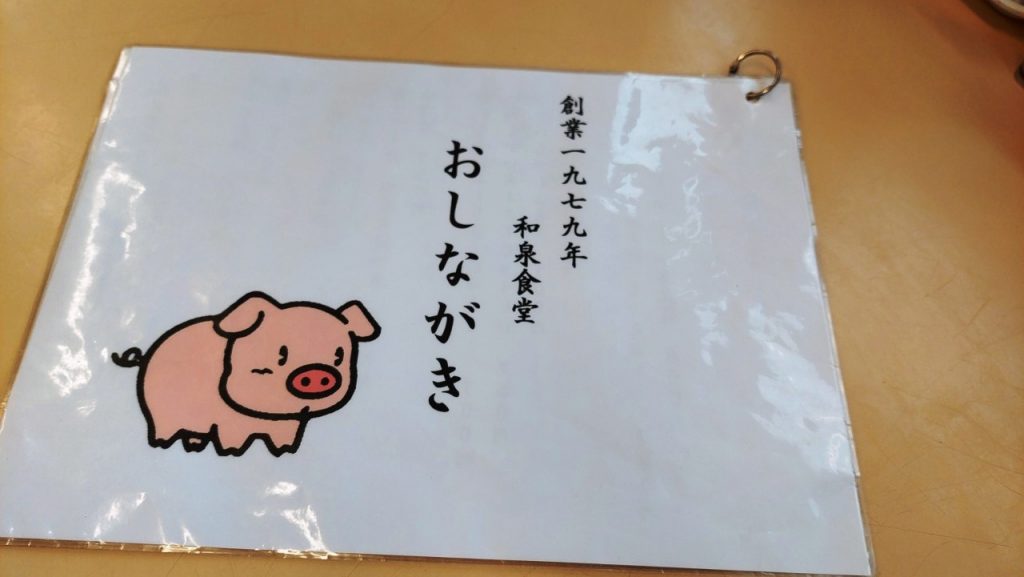 創業一九七九年
和泉食堂
おしながき